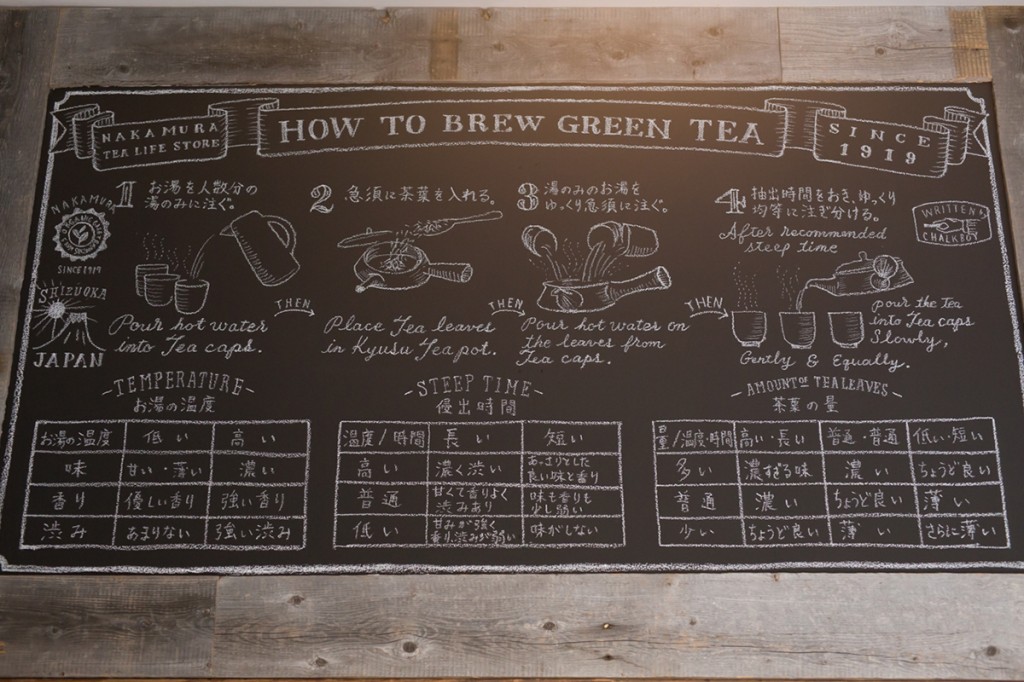 NAKAMURA
TEA LIFE STORE
HOW TO BREW GREEN TEA
SINCE
1919
NAKAMURA
SINCE 1919
SHIZUOKA
JAPAN
1 お湯を人数分の
湯のみに注ぐ。
Pour hot water
into Tea caps.
THEN
2 急須に茶葉を入れる。
Place Tea leaves
in Kyusu Tea pot.
THEN
3 湯のみのお湯を
ゆっくり急須に注ぐ。
Pour hot water on
the leaves from
Tea caps.
THEN
4 抽出時間をおき、ゆっくり
均等に注ぎ分ける。
After recommended
steep time
pour the tea
into Tea caps
Slowly,
Gently & Equally.
WRITTEN
CHALKBOY
TEMPERATURE
お湯の温度
お湯の温度 低い 高い
味 甘い・薄い 濃い
香り 優しい香り 強い香り
渋み あまりない 強い渋み
STEEP TIME
浸出時間
温度/時間 長い 短い
高い 濃く渋い あっさりとした
良い味と香り
普通 甘くて香りよく
渋みあり 味も香りも
少し弱い
低い 甘みが強く
香り、渋みが弱い 味がしない
AMOUNT OF TEA LEAVES
茶葉の量
量/温度・時間 高い・長い 普通・普通 低い・短い
多い 濃すぎる味 濃い ちょうど良い
普通 濃い ちょうど良い 薄い
少い ちょうど良い 薄い さらに薄い